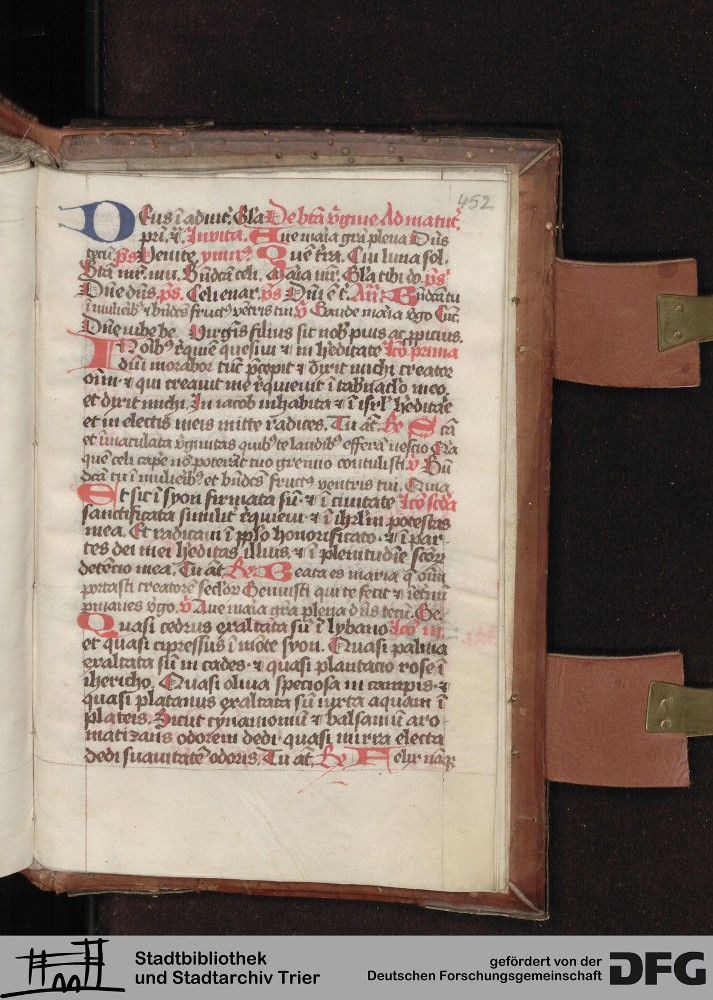 452
Deus ī adiut᷒. Gl'a De btā v̄gine Ad matut᷒.
pri. ꝟ. Invita. Aue maīa grā plena Dn̄s
tecū. ps Venite. ymn᷒ Quē t̄ra. Cui luna sol.
Btā mr̄. Bn̄dcā celi. Maīa mr̄. Gl'a tibi do. ps
Dn̄e dn̄s. ps. Celi enar. ps Dn̄i ē t̄. An̄. Bn̄dcā tu
ī mulieib᷒ ⁊ bn̄dc᷒ fruct᷒ vētris tui ꝟ Gaude maīa v̄go
Dn̄e iube be. Virginis filius sit nob᷒ pius ac ꝓpicius.
IN oib᷒ r̄quiē quesiui ⁊ in h̄editate lc̄o prima
dn̄i morabor tūc p̄cepit ⁊ dixit michi creator
oīm ⁊ qui creauit me r̄quieuit ī tab̄nac'lo meo.
et dixit michi. In iacob inhabita ⁊ ī isrl' h̄editāe
et in electis meis mitte radices. Tu āt. Re Scā
et īmaculata v̄ginitas quib᷒ te laudib᷒ efferā nescio Q̄a
quē celi cape nō poterāt tuo gremio contulisti. ꝟ Bn̄
dcā tu ī mulieib᷒ et bn̄dc᷒ fruct᷒ ventris tui. Q̄uia
Et sic ī syon firmata sū. ⁊ ī ciuitate lc̄o scd̄a
sanctificata similit᷒ r̄quieui ⁊ ī ihrl'm potestas
mea. Et radicaui ī pplo honorificato. ⁊ ī par-
tes dei mei h̄editas illius. ⁊ ī plenitudīe scōꝝ
detēcio mea. Tu āt Re. Beata es maria q̄ oīm
portasti creatorē seclōꝝ Genuisti qui te fecit ⁊ ī et̄nū
p̄manes v̄go. ꝟ Aue maīa grā plena dn̄s tecū. Ge.
Quasi cedrus exaltata sū ī lybano lc̄o iii.
et quasi cipressus ī mōte syon. Quasi palma
exaltata sū in cades. ⁊ quasi plantacio rose ī
ihericho. Quasi oliua speciosa in campis. ⁊
quasi platanus exaltata sū iuxta aquam ī
plateis. Sicut cynamomū ⁊ balsamū aro
matizans odorem dedi. quasi mirra electa
dedi suauitatē odoris. Tu āt. Re Felix naq̄
Stadtbibliothek
und Stadtarchiv Trier
gefördert von der
Deutschen Forschungsgemeinschaft
DFG